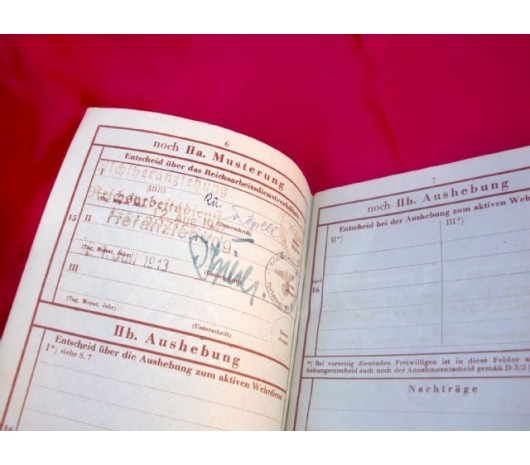 6
noch IIa. Musterung
Entscheid über das Reichsarbeitsdienstverhältnis
I
Nichtheranziehung
zum
Reichsarbeitsdienst
15 II
Heranziehung
Juli 1943
(Tag, Monat, Jahr) (Unterschrift)
III
(Tag, Monat, Jahr) (Unterschrift)
IIb. Aushebung
Entscheid über die Aushebung zum aktiven Wehrdienst
I*) siehe S. 7
16
7
noch IIb. Aushebung
Entscheid bei der Aushebung zum aktiven Weh
II*) III*)
noch
16
*) Bei vorzeitig dienenden Freiwilligen ist in diese Felder a
hebungsentscheid auch noch der Annahmeentscheid gemäß D 3/2
Nachträge